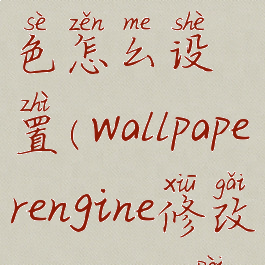 sè zěn me shè
色怎么设
zhì
置(wallpape
xiū gǎi
rengine修改